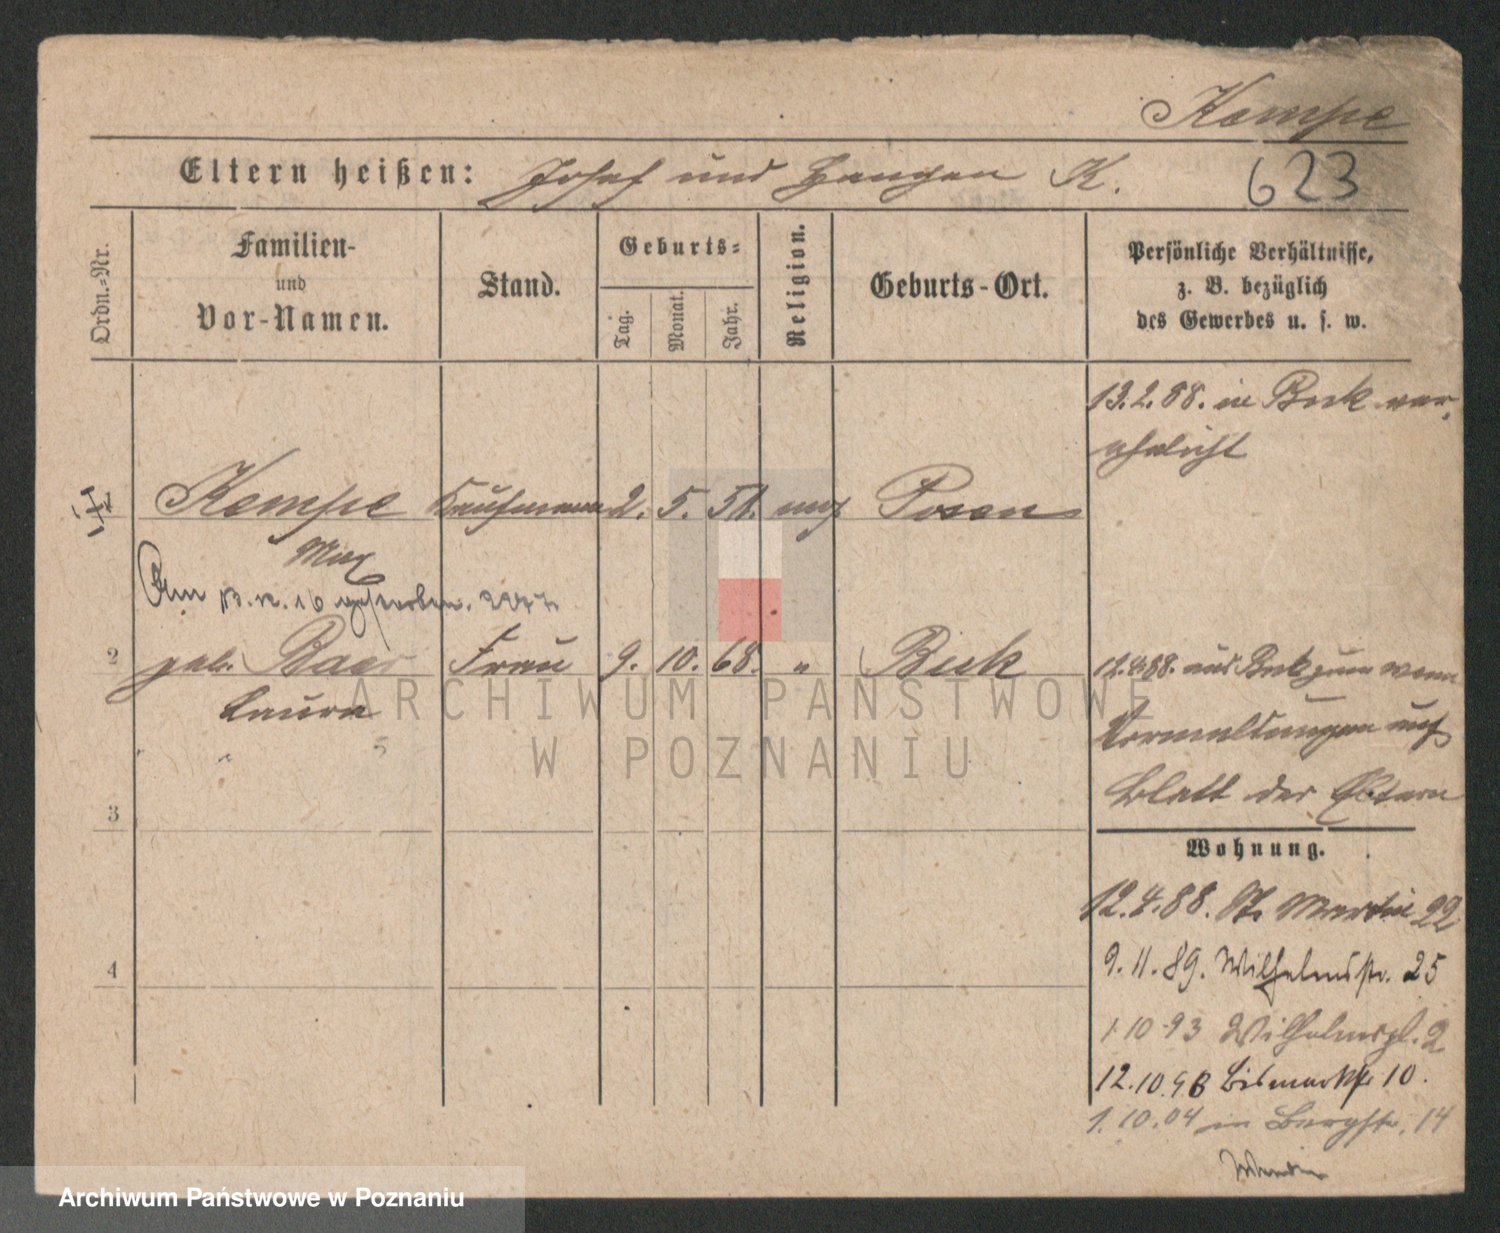 Kempe
Eltern heißen: Josef und K.
623
Ordn.-Nr.
Familien-
und
Vor-Namen.
Stand.
Geburts-
Tag.
Monat.
Jahr.
Religion.
Geburts-Ort.
Persönliche Verhältnisse,
z. B. bezüglich
des Gewerbes u. s. w.
13.2.88. in Buk ver-
ehelicht
Kempe Kaufmann 2. 5. mos Posen
Max
Am 16 gestorben.
2 geb. Baer Frau 9. 10. 68. " Buk
Laura
12.4.88. aus Buk
Vermeldungen auf
Blatt der Eltern
3
Wohnung.
12.4.88. St. Martin 22
4
9.11.89. Wilhelmstr. 25
1 10 93 Wilhelmspl. 2
12.10.98 Bismarckstr 10.
1.10.04 in Bergstr. 14
ARCHIWUM PAŃSTWOWE
W POZNANIU
Archiwum Państwowe w Poznaniu